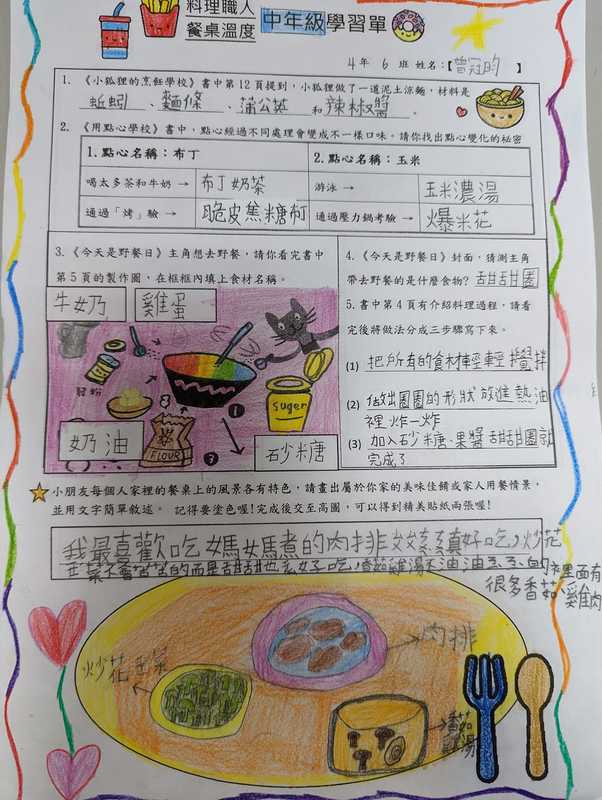 料理職人
餐桌溫度 中年級學習單
4年 6班 姓名：【曾冠昀】
1. 《小狐狸的烹飪學校》書中第12頁提到，小狐狸做了一道泥土涼麵，材料是
蚯蚓、麵條、蒲公英 和辣椒醬。
2. 《用點心學校》書中，點心經過不同處理會變成不一樣口味。請你找出點心變化的秘密
1. 點心名稱：布丁 2. 點心名稱：玉米
喝太多茶和牛奶→ 布丁奶茶 游泳→ 玉米濃湯
通過「烤」驗→ 脆皮焦糖布丁 通過壓力鍋考驗→ 爆米花
3. 《今天是野餐日》主角想去野餐，請你看完書中
第5頁的製作圖，在框框內填上食材名稱。
牛奶 雞蛋
suger
奶油
FLOUR
砂糖
4. 《今天是野餐日》封面，猜測主角
帶去野餐的是什麼食物？甜甜圈
5. 書中第4頁有介紹料理過程，請看
完後將做法分成三步驟寫下來。
(1) 把所有的食材輕輕攪拌
(2) 做出圈圈的形狀放進熱油
裡炸一炸
(3) 加入砂糖、果醬甜甜圈就
完成了
小朋友每個人家裡的餐桌上的風景各有特色，請畫出屬於你家的美味佳餚或家人用餐情景，
並用文字簡單敘述。 記得要塗色喔！完成後交至高圖，可以得到精美貼紙兩張喔！
我最喜歡吃媽媽煮的肉排 真好吃，炒花
的而是甜甜 也 好吃，香菇雞湯不油油 的裡面有
很多香菇、雞肉
肉排
炒花
香菇
湯